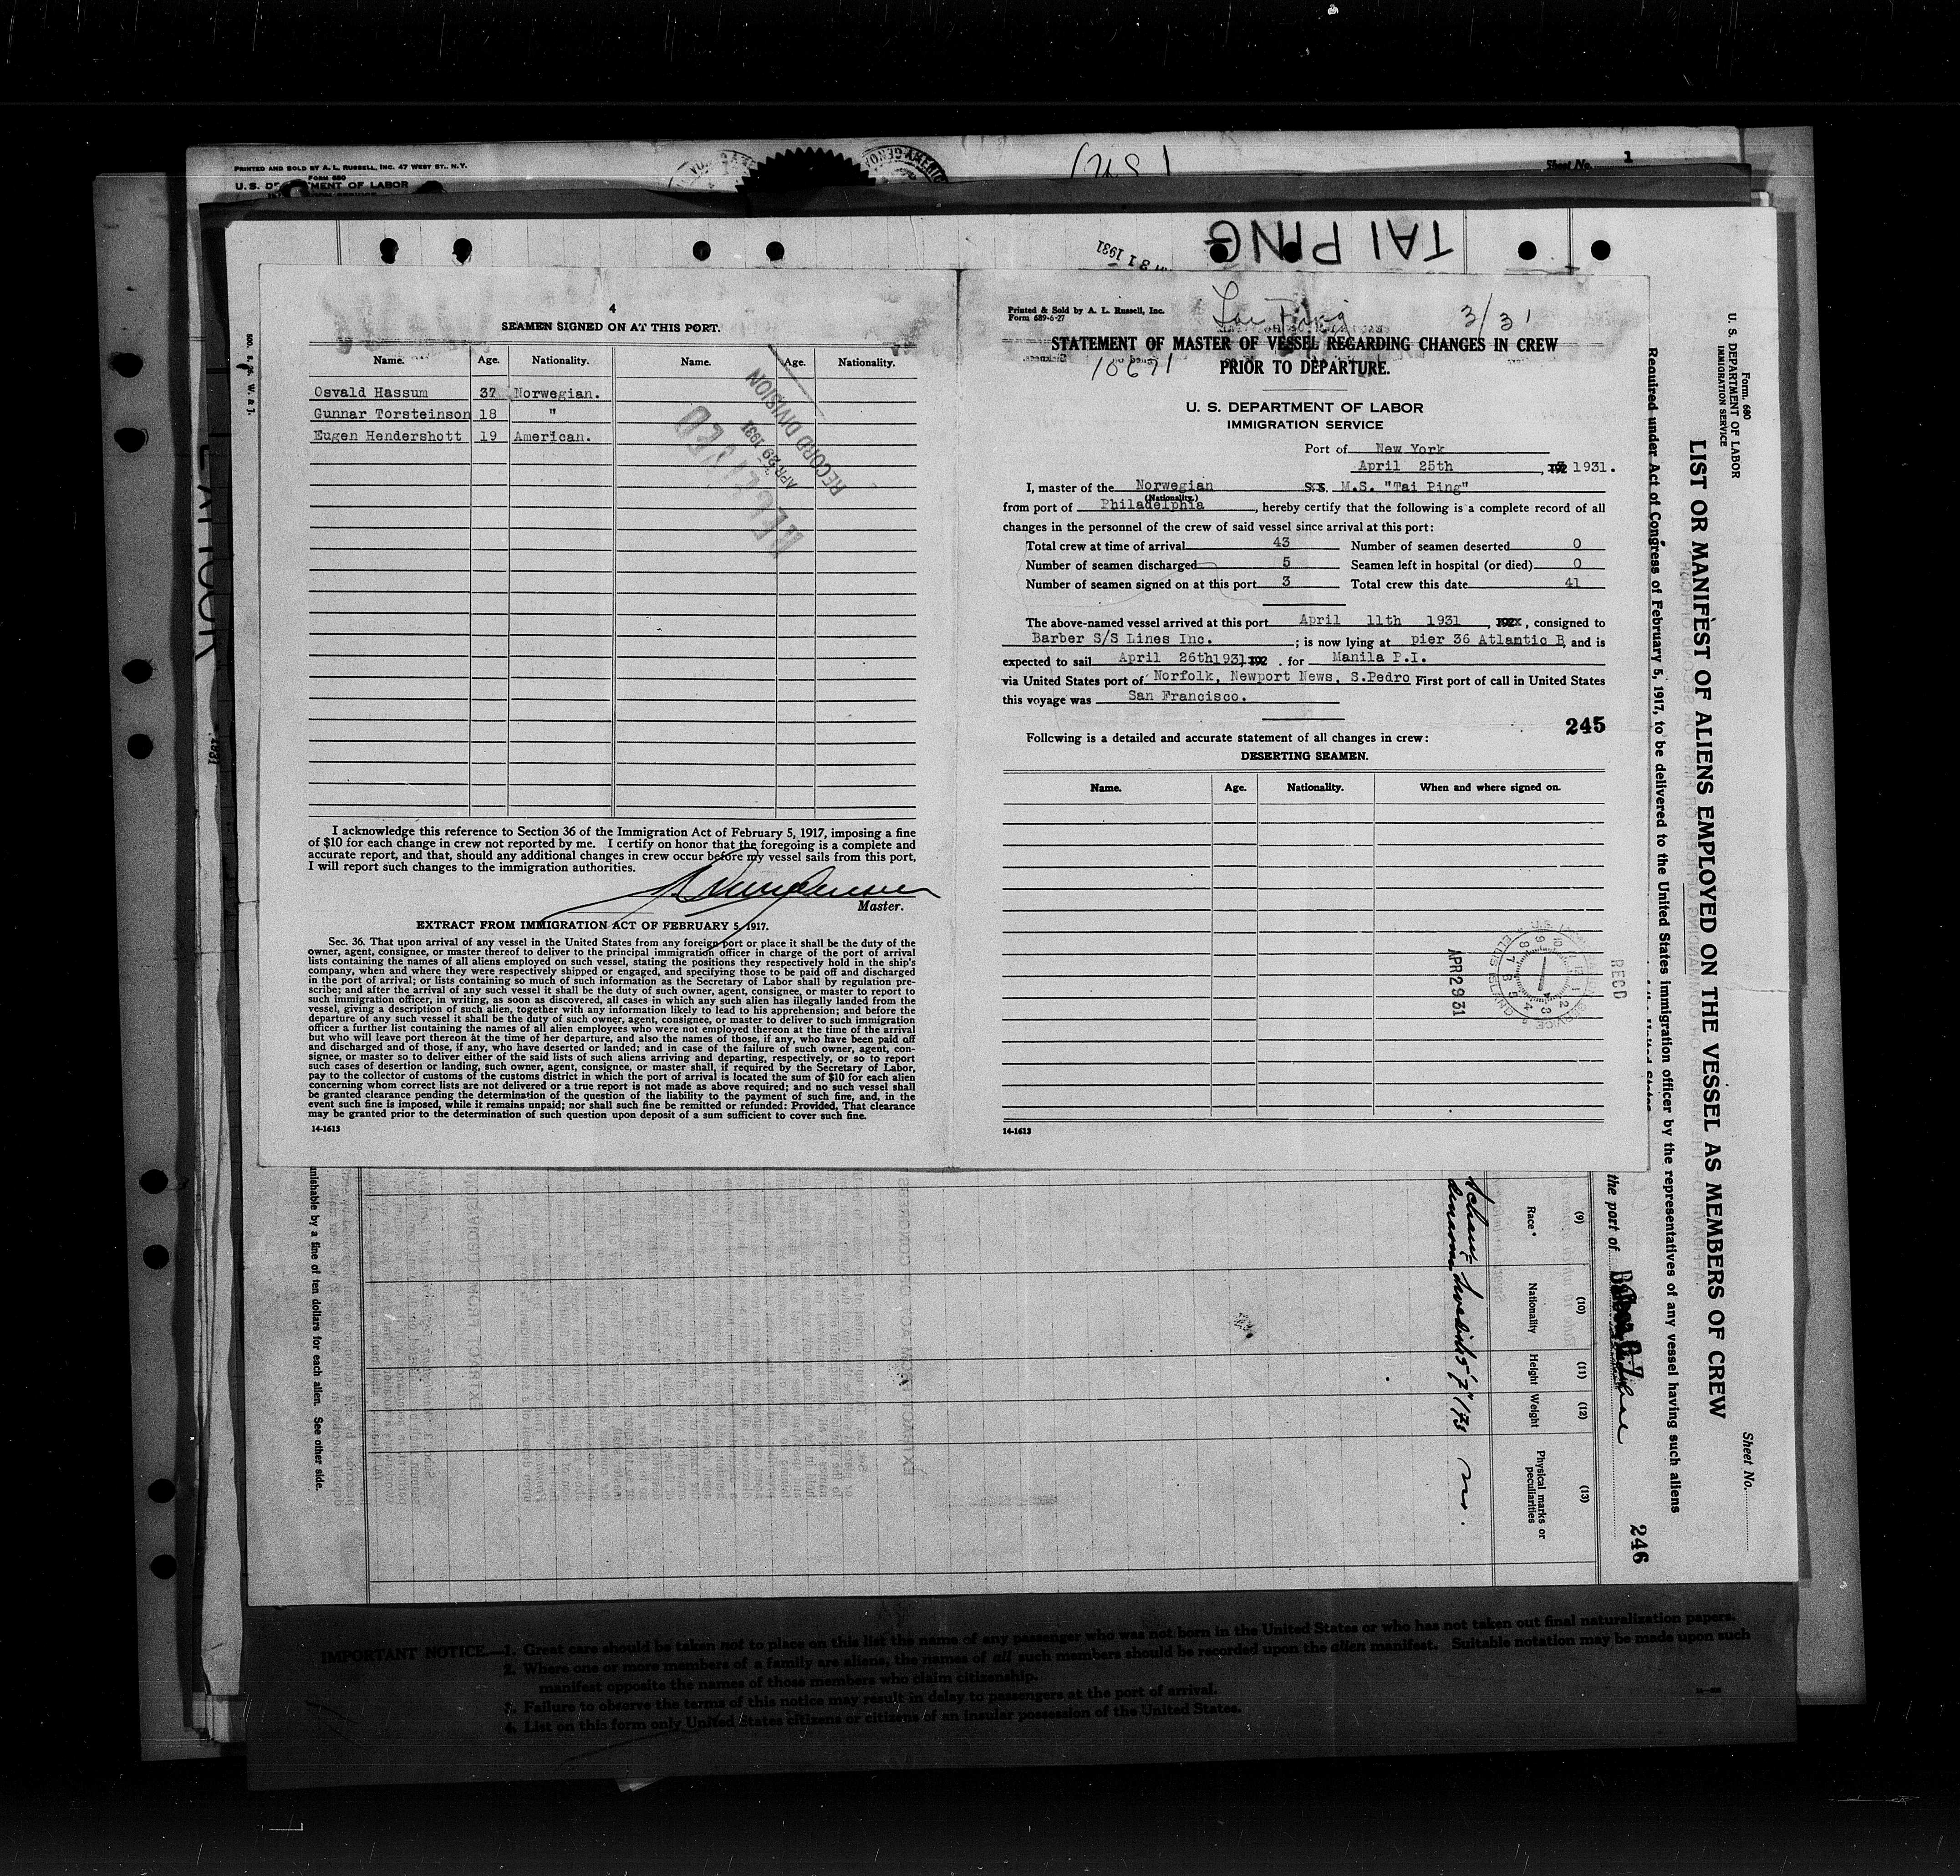 PRINTED AND SOLD BY A. L. RUSSELL, INC. 47 WEST ST., N.Y.
FORM 680
Sheet No. 1
TAI PING
4
SEAMEN SIGNED ON AT THIS PORT.
Name. Age. Nationality. Name. Age. Nationality.
Osvald Hassum 37 Norwegian.
Gunnar Torsteinson 18 "
Eugen Hendershott 19 American.
RECEIVED
APR 29 1931
RECORD DIVISION
I acknowledge this reference to Section 36 of the Immigration Act of February 5, 1917, imposing a fine
of $10 for each change in crew not reported by me. I certify on honor that the foregoing is a complete and
accurate report, and that, should any additional changes in crew occur before my vessel sails from this port,
I will report such changes to the immigration authorities.
Master.
EXTRACT FROM IMMIGRATION ACT OF FEBRUARY 5, 1917.
Sec. 36. That upon arrival of any vessel in the United States from any foreign port or place it shall be the duty of the
owner, agent, consignee, or master thereof to deliver to the principal immigration officer in charge of the port of arrival
lists containing the names of all aliens employed on such vessel, stating the positions they respectively hold in the ship's
company, when and where they were respectively shipped or engaged, and specifying those to be paid off and discharged
in the port of arrival; or lists containing so much of such information as the Secretary of Labor shall by regulation pre-
scribe; and after the arrival of any such vessel it shall be the duty of such owner, agent, consignee, or master to report to
such immigration officer, in writing, as soon as discovered, all cases in which any such alien has illegally landed from the
vessel, giving a description of such alien, together with any information likely to lead to his apprehension; and before the
departure of any such vessel it shall be the duty of such owner, agent, consignee, or master to deliver to such immigration
officer a further list containing the names of all alien employees who were not employed thereon at the time of the arrival
but who will leave port thereon at the time of her departure, and also the names of those, if any, who have been paid off
and discharged and of those, if any, who have deserted or landed; and in case of the failure of such owner, agent, con-
signee, or master so to deliver either of the said lists of such aliens arriving and departing, respectively, or so to report
such cases of desertion or landing, such owner, agent, consignee, or master shall, if required by the Secretary of Labor,
pay to the collector of customs of the customs district in which the port of arrival is located the sum of $10 for each alien
concerning whom correct lists are not delivered or a true report is not made as above required; and no such vessel shall
be granted clearance pending the determination of the question of the liability to the payment of such fine, and, in the
event such fine is imposed, while it remains unpaid; nor shall such fine be remitted or refunded: Provided, That clearance
may be granted prior to the determination of such question upon deposit of a sum sufficient to cover such fine.
14-1613
Printed & Sold by A. L. Russell, Inc.
Form 689-6-27
Tai Ping 3/31
STATEMENT OF MASTER OF VESSEL REGARDING CHANGES IN CREW
10671 PRIOR TO DEPARTURE.
U. S. DEPARTMENT OF LABOR
IMMIGRATION SERVICE
Port of New York
April 25th, 1931.
I, master of the Norwegian S.S. M.S. "Tai Ping"
(Nationality.)
from port of Philadelphia, hereby certify that the following is a complete record of all
changes in the personnel of the crew of said vessel since arrival at this port:
Total crew at time of arrival 43 Number of seamen deserted 0
Number of seamen discharged 5 Seamen left in hospital (or died) 0
Number of seamen signed on at this port 3 Total crew this date 41
The above-named vessel arrived at this port April 11th 1931, 192x, consigned to
Barber S/S Lines Inc.; is now lying at pier 36 Atlantic B, and is
expected to sail April 26th 1931, 192 . for Manila P.I.
via United States port of Norfolk, Newport News, S.Pedro First port of call in United States
this voyage was San Francisco.
245
Following is a detailed and accurate statement of all changes in crew:
DESERTING SEAMEN.
Name. Age. Nationality. When and where signed on.
APR 29 31
RECD
14-1613
Form 680
U. S. DEPARTMENT OF LABOR
IMMIGRATION SERVICE
Sheet No.
LIST OR MANIFEST OF ALIENS EMPLOYED ON THE VESSEL AS MEMBERS OF CREW
Required under Act of Congress of February 5, 1917, to be delivered to the United States immigration officer by the representatives of any vessel having such aliens
the port of
246
(9) (10) (11) (12) (13)
Race* Nationality Height Weight Physical marks or peculiarities
Swedish 5' 7" 175
unishable by a fine of ten dollars for each alien. See other side.
IMPORTANT NOTICE.—1. Great care should be taken not to place on this list the name of any passenger who was not born in the United States or who has not taken out final naturalization papers.
2. Where one or more members of a family are aliens, the names of all such members should be recorded upon the alien manifest. Suitable notation may be made upon such
manifest opposite the names of those members who claim citizenship.
3. Failure to observe the terms of this notice may result in delay to passengers at the port of arrival.
4. List on this form only United States citizens or citizens of an insular possession of the United States.